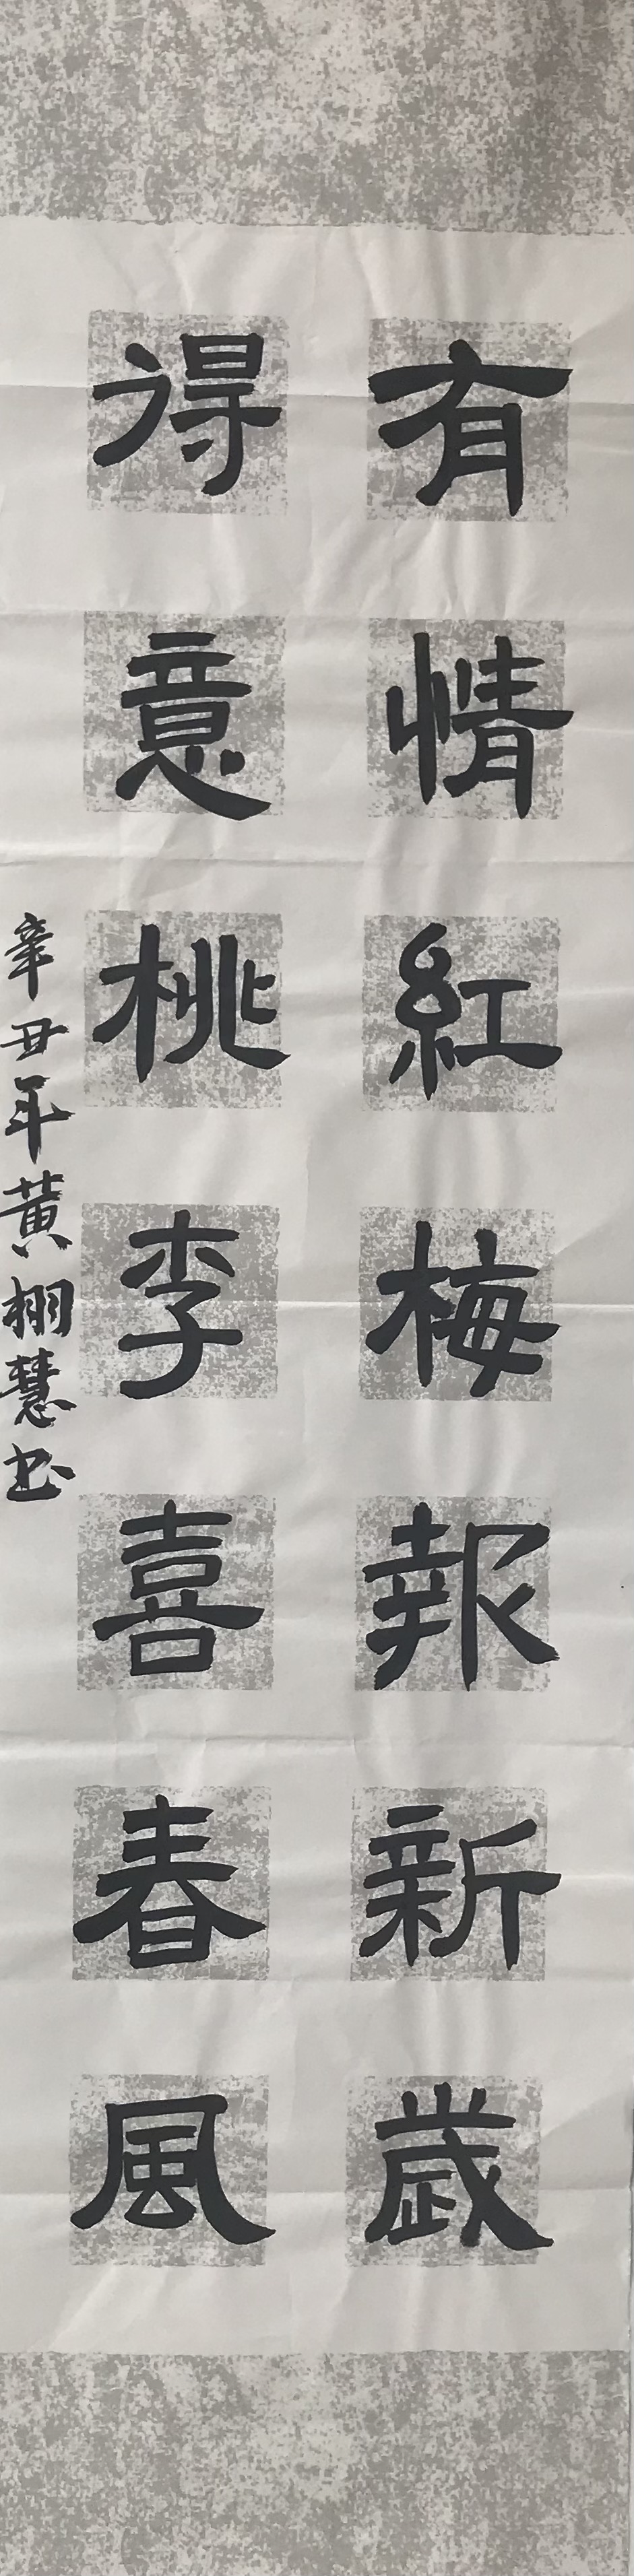 有情紅梅報新歲
得意桃李喜春風
辛丑年黄栩慧书